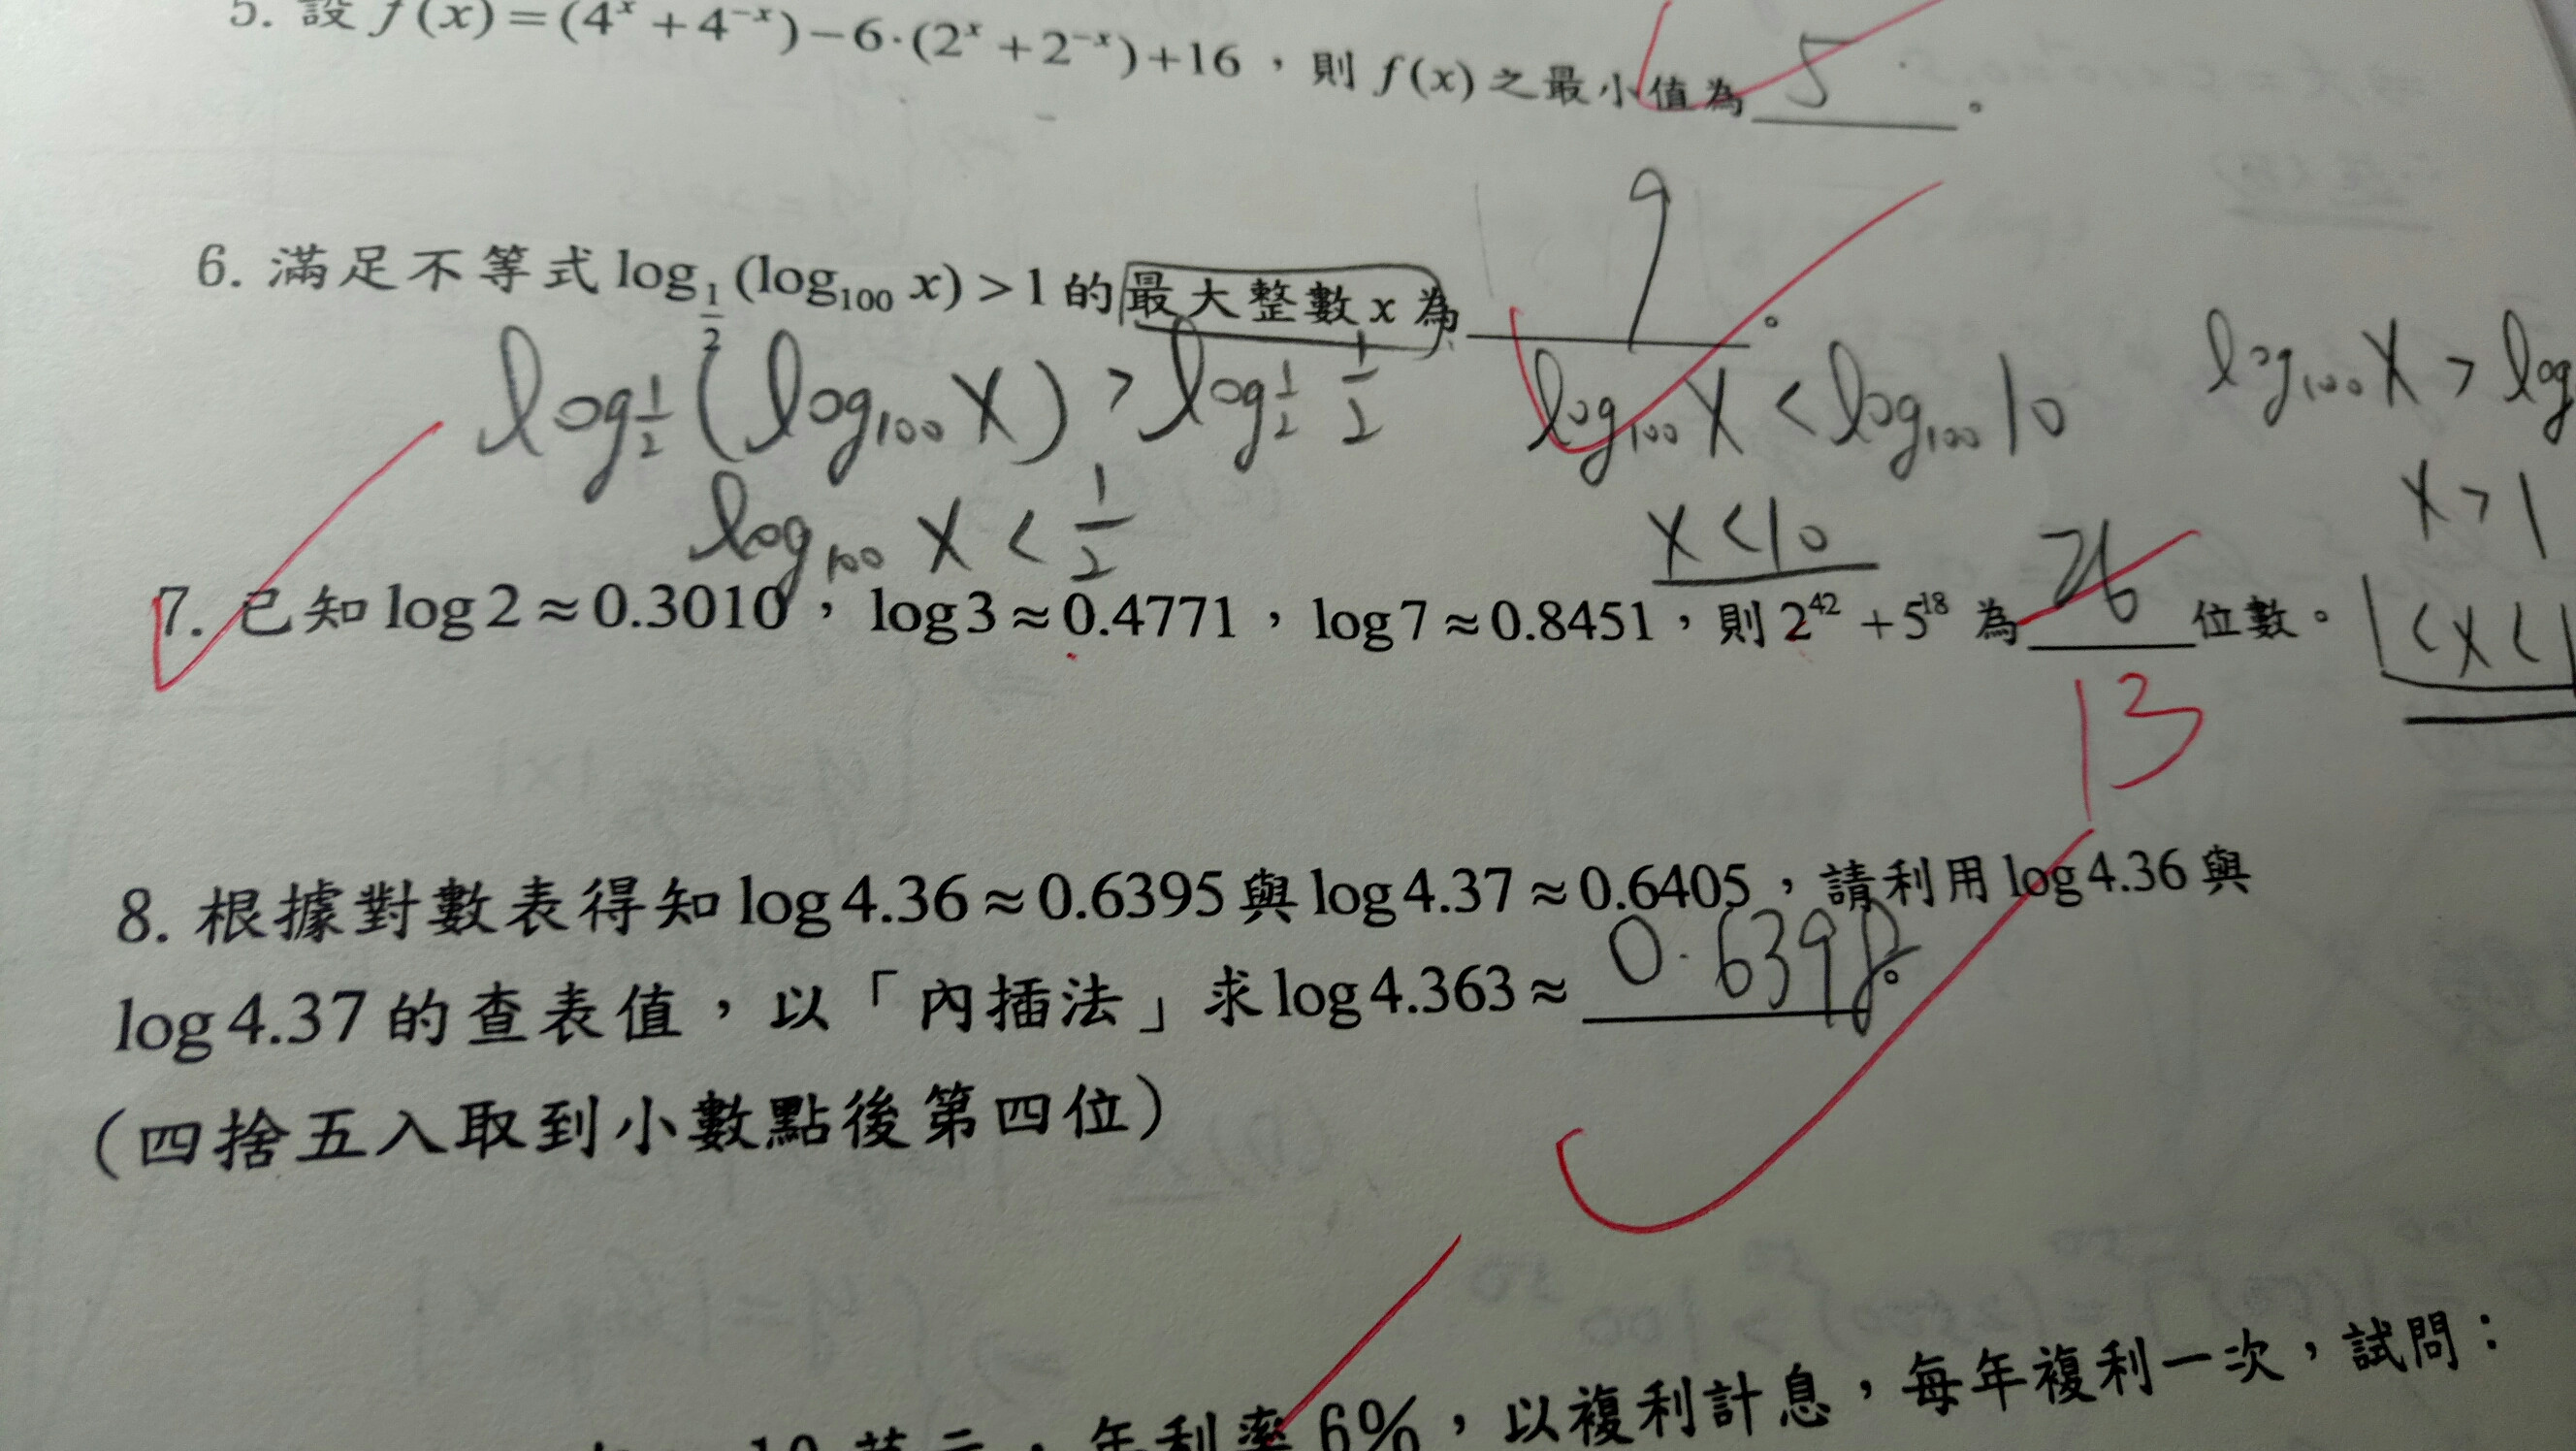 5. 設 f(x)=(4^x+4^{-x})-6·(2^x+2^{-x})+16，則 f(x) 之最小值為 5 。
6. 滿足不等式 log_{1/2}(log_{100} x)>1 的最大整數 x 為 9 。
log_{1/2}(log_{100} X) > log_{1/2} 1/2
log_{100} X < log_{100} 10
log_{100} X > log
log_{100} X < 1/2
X < 10
X > 1
7. 已知 log2≈0.3010，log3≈0.4771，log7≈0.8451，則 2^{42}+5^{18} 為 26 位數。
1<X<1
13
8. 根據對數表得知 log4.36≈0.6395 與 log4.37≈0.6405，請利用 log4.36 與
log4.37 的查表值，以「內插法」求 log4.363≈ 0.6398 。
（四捨五入取到小數點後第四位）
年利率 6%，以複利計息，每年複利一次，試問：